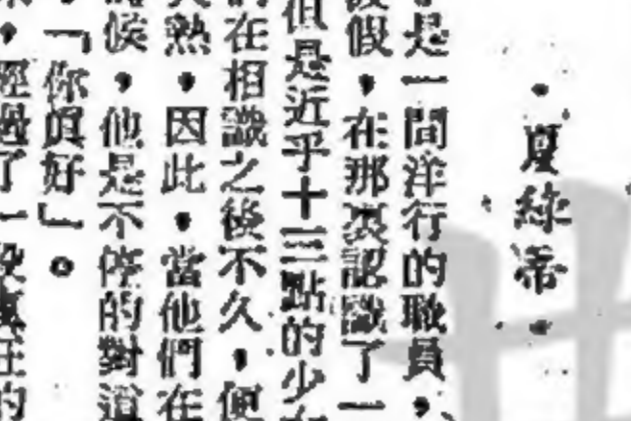 ・夏綠蒂・
是一間洋行的職員，
假，在那裏認識了一
但是近乎十三點的少
在相識之後不久，便
熟，因此，當他們在
候，他是不停的對這
，「你眞好」。
，經過了一段瘋狂的